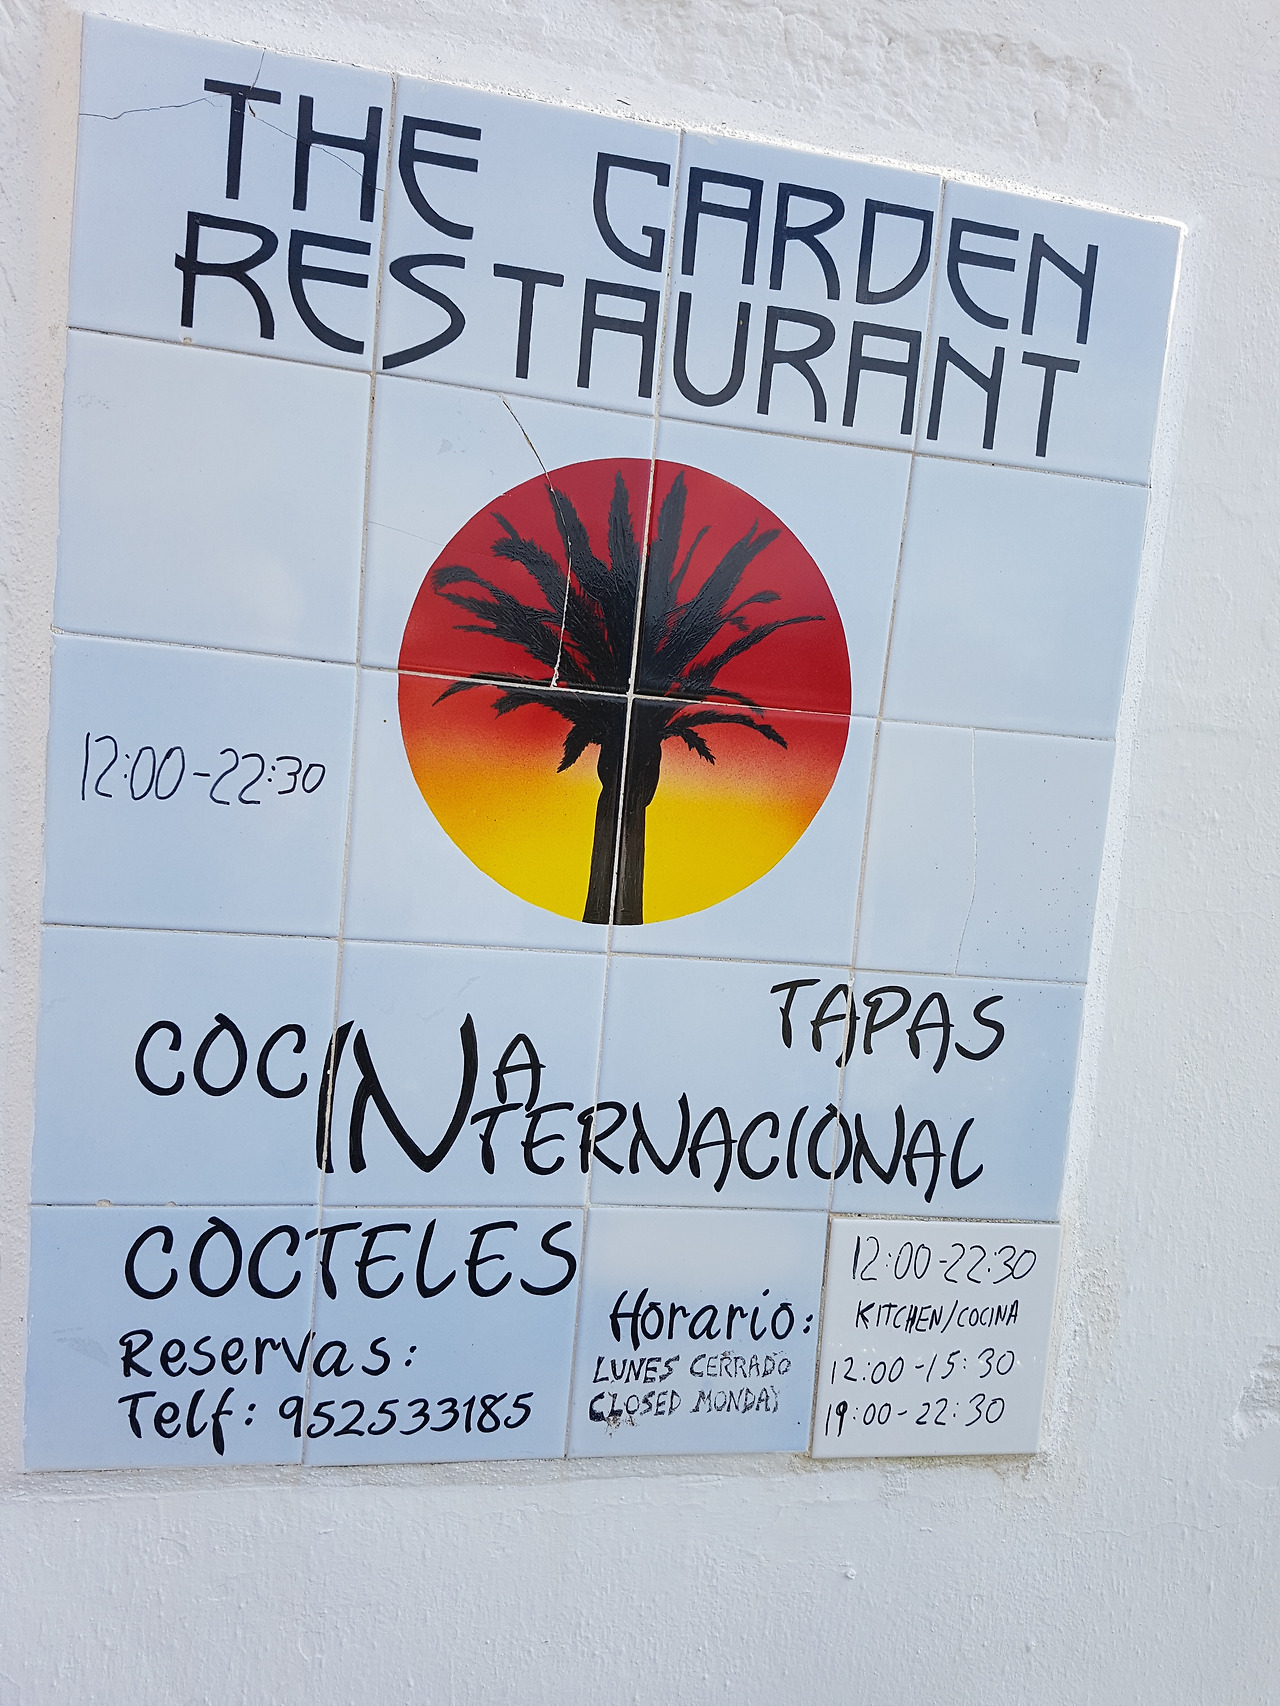 THE GARDEN
RESTAURANT
12:00-22:30
TAPAS
COCINA
INTERNACIONAL
COCTELES
Reservas:
Telf: 952533185
Horario:
LUNES CERRADO
CLOSED MONDAY
12:00-22:30
KITCHEN/COCINA
12:00-15:30
19:00-22:30